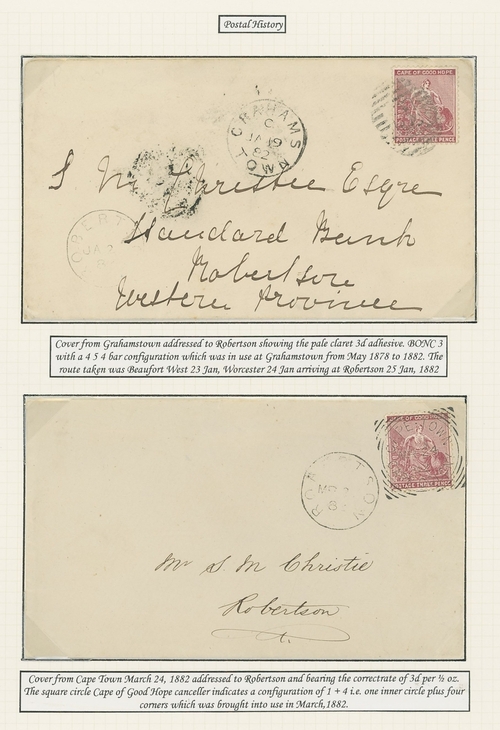 Postal History
CAPE OF GOOD HOPE
POSTAGE THREE PENCE
GRAHAMS
TOWN
C
JA 19
82
S M Christie Esqre
Standard Bank
Robertson
Western Province
ROBERT
JA 2
Cover from Grahamstown addressed to Robertson showing the pale claret 3d adhesive. BONC 3
with a 4 5 4 bar configuration which was in use at Grahamstown from May 1878 to 1882. The
route taken was Beaufort West 23 Jan, Worcester 24 Jan arriving at Robertson 25 Jan, 1882
CAPE OF GOOD HOPE
POSTAGE THREE PENCE
ROBERTSON
MR
Mr S. M Christie
Robertson
Cover from Cape Town March 24, 1882 addressed to Robertson and bearing the correctrate of 3d per ½ oz.
The square circle Cape of Good Hope canceller indicates a configuration of 1 + 4 i.e. one inner circle plus four
corners which was brought into use in March,1882.